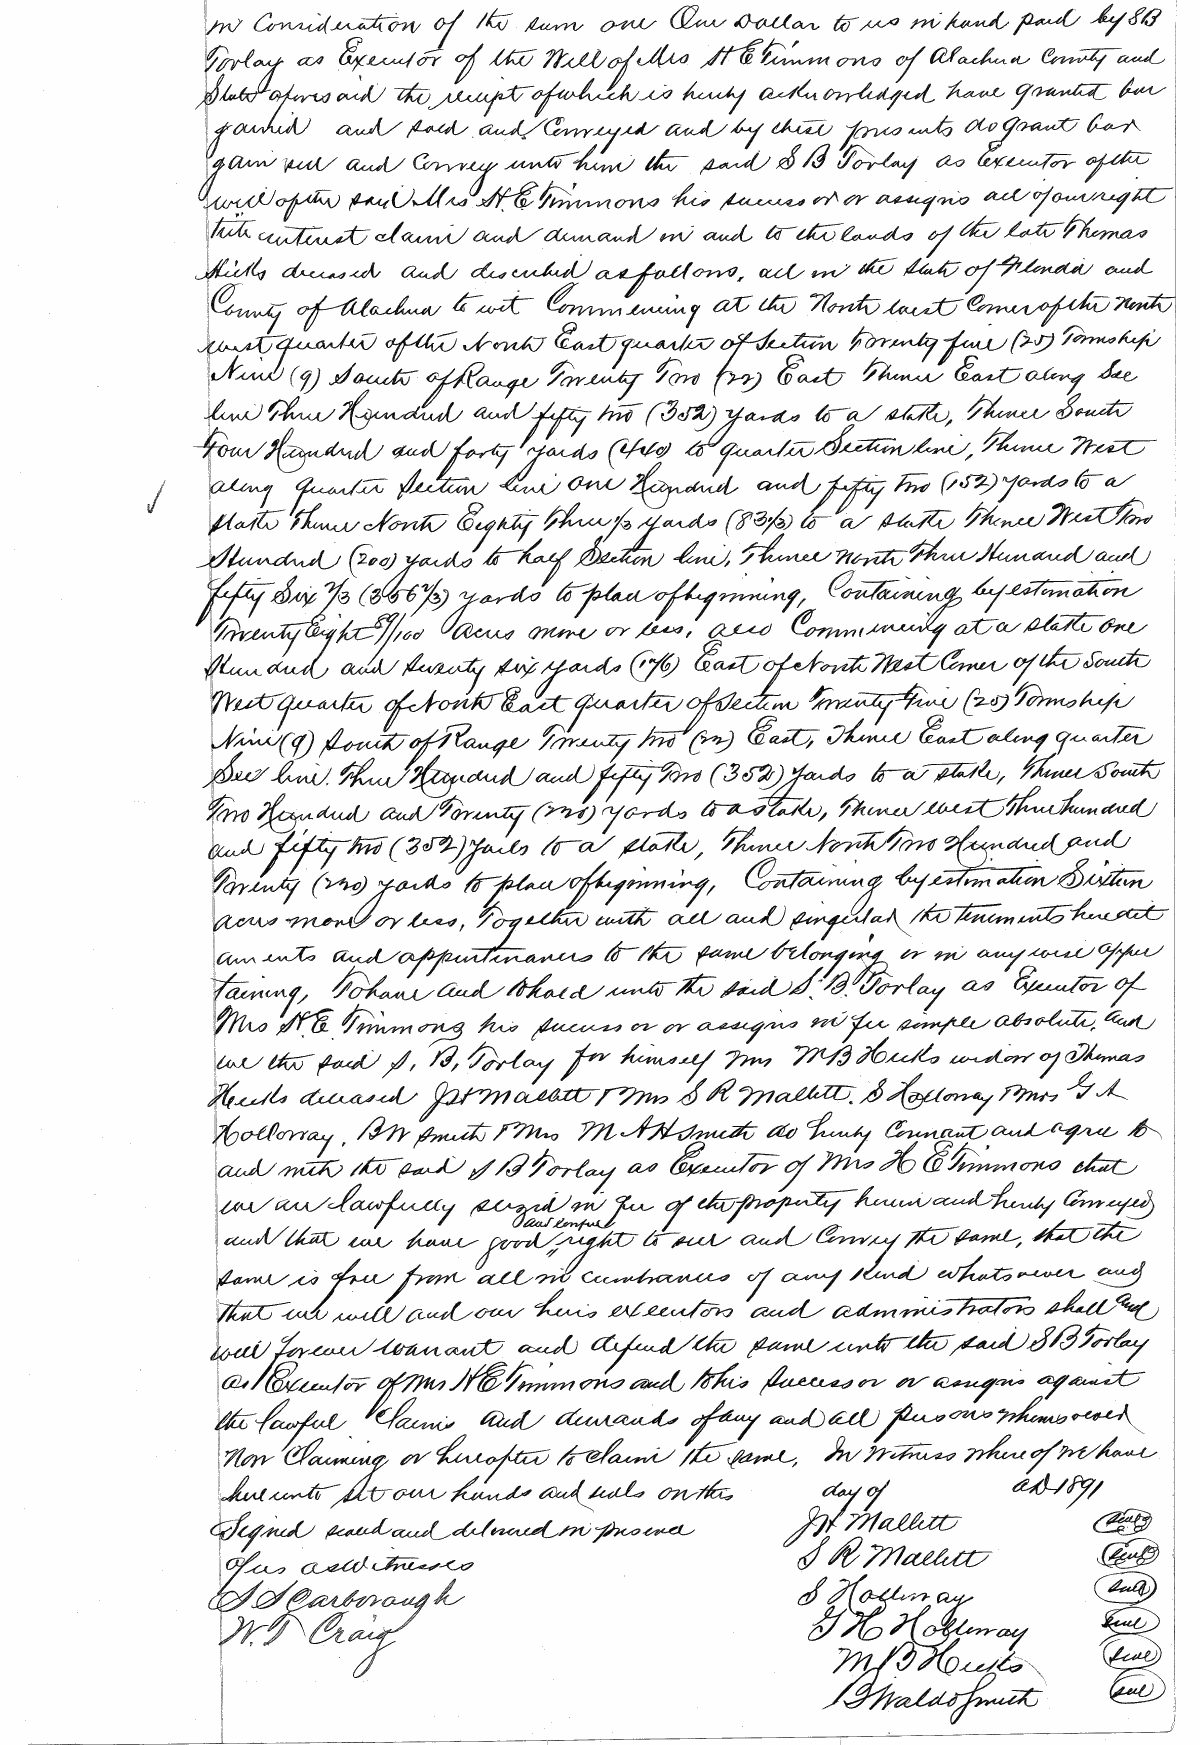 in Consideration of the sum one One Dollar to us in hand paid by S B
Torlay as Executor of the Will of Mrs H E Timmons of Alachua County and
State aforesaid the receipt of which is hereby acknowledged have granted bar
gained and sold and Conveyed and by these presents do grant bar
gain sell and Convey unto him the said S B Torlay as Executor of the
will of the said Mrs H. E Timmons his sucessor or assigns all of our right
title interest claim and demand in and to the lands of the late Thomas
Hicks deceased and described as follows, all in the State of Florida and
County of Alachua to wit Commencing at the North west Corner of the North
west quarter of the North East quarter of Section Twenty five (25) Township
Nine (9) South of Range Twenty Two (22) East Thence East along Sec
line Three Hundred and fifty two (352) yards to a stake, Thence South
Four Hundred and forty yards (440 to quarter Section line, Thence West
along quarter Section line One Hundred and fifty two (152) yards to a
stake Thence North Eighty Three 1/3 yards (83 1/3) to a stake Thence West Two
Hundred (200) yards to half Section line, Thence North Three Hundred and
fifty Six 2/3 (356 2/3) yards to place of beginning, Containing by estimation
Twenty Eight 59/100 Acres more or less, also Commencing at a stake one
Hundred and seventy six yards (176) East of North West Corner of the South
West quarter of North East quarter of Section Twenty Five (25) Township
Nine (9) South of Range Twenty two (22) East, Thence East along quarter
Sec line. Three Hundred and fifty Two (352) yards to a stake, Thence South
Two Hundred and Twenty (220) yards to a stake, Thence west Three hundred
and fifty two (352) yards to a stake, Thence North Two Hundred and
Twenty (220) yards to place of beginning, Containing by estimation Sixteen
acres more or less, Together with all and singular the tenements heredit
aments and appurtenances to the same belonging or in any wise apper
taining, To have and to hold unto the said S. B. Torlay as Executor of
Mrs H. E. Timmons his sucessor or assigns in fee simple absolute, and
we the said S, B, Torlay for himself Mrs M B Hicks widow of Thomas
Hicks deceased JH Mallett & Mrs S R Mallett. S Holloway & Mrs G A
Holloway, B W Smith & Mrs M A H Smith do hereby Covenant and agree to
and with the said S B Torlay as Executor of Mrs H E Timmons that
we are lawfully seized in fee of the property herein and hereby Conveyed
and lawful
and that we have good right to sell and Convey the same, that the
same is free from all in cumbrances of any Kind whatsoever and
that we will and our heirs executors and administrators shall and
will forever warrant and defend the same unto the said S B Torlay
as Executor of Mrs H E Timmons and to his Successor or assigns against
the lawful Claims and demands of any and all persons whomsoever
Now Claiming or hereafter to claim the same, In Witness Whereof We have
here unto set our hands and seals on this day of AD 1891
Signed sealed and delivered in presence
of us as Witnesses
S Scarborough
W. T Craig
JH Mallett Seal
S R Mallett Seal
S Holloway Seal
G H Holloway Seal
M B Hicks Seal
B Waldo Smith Seal